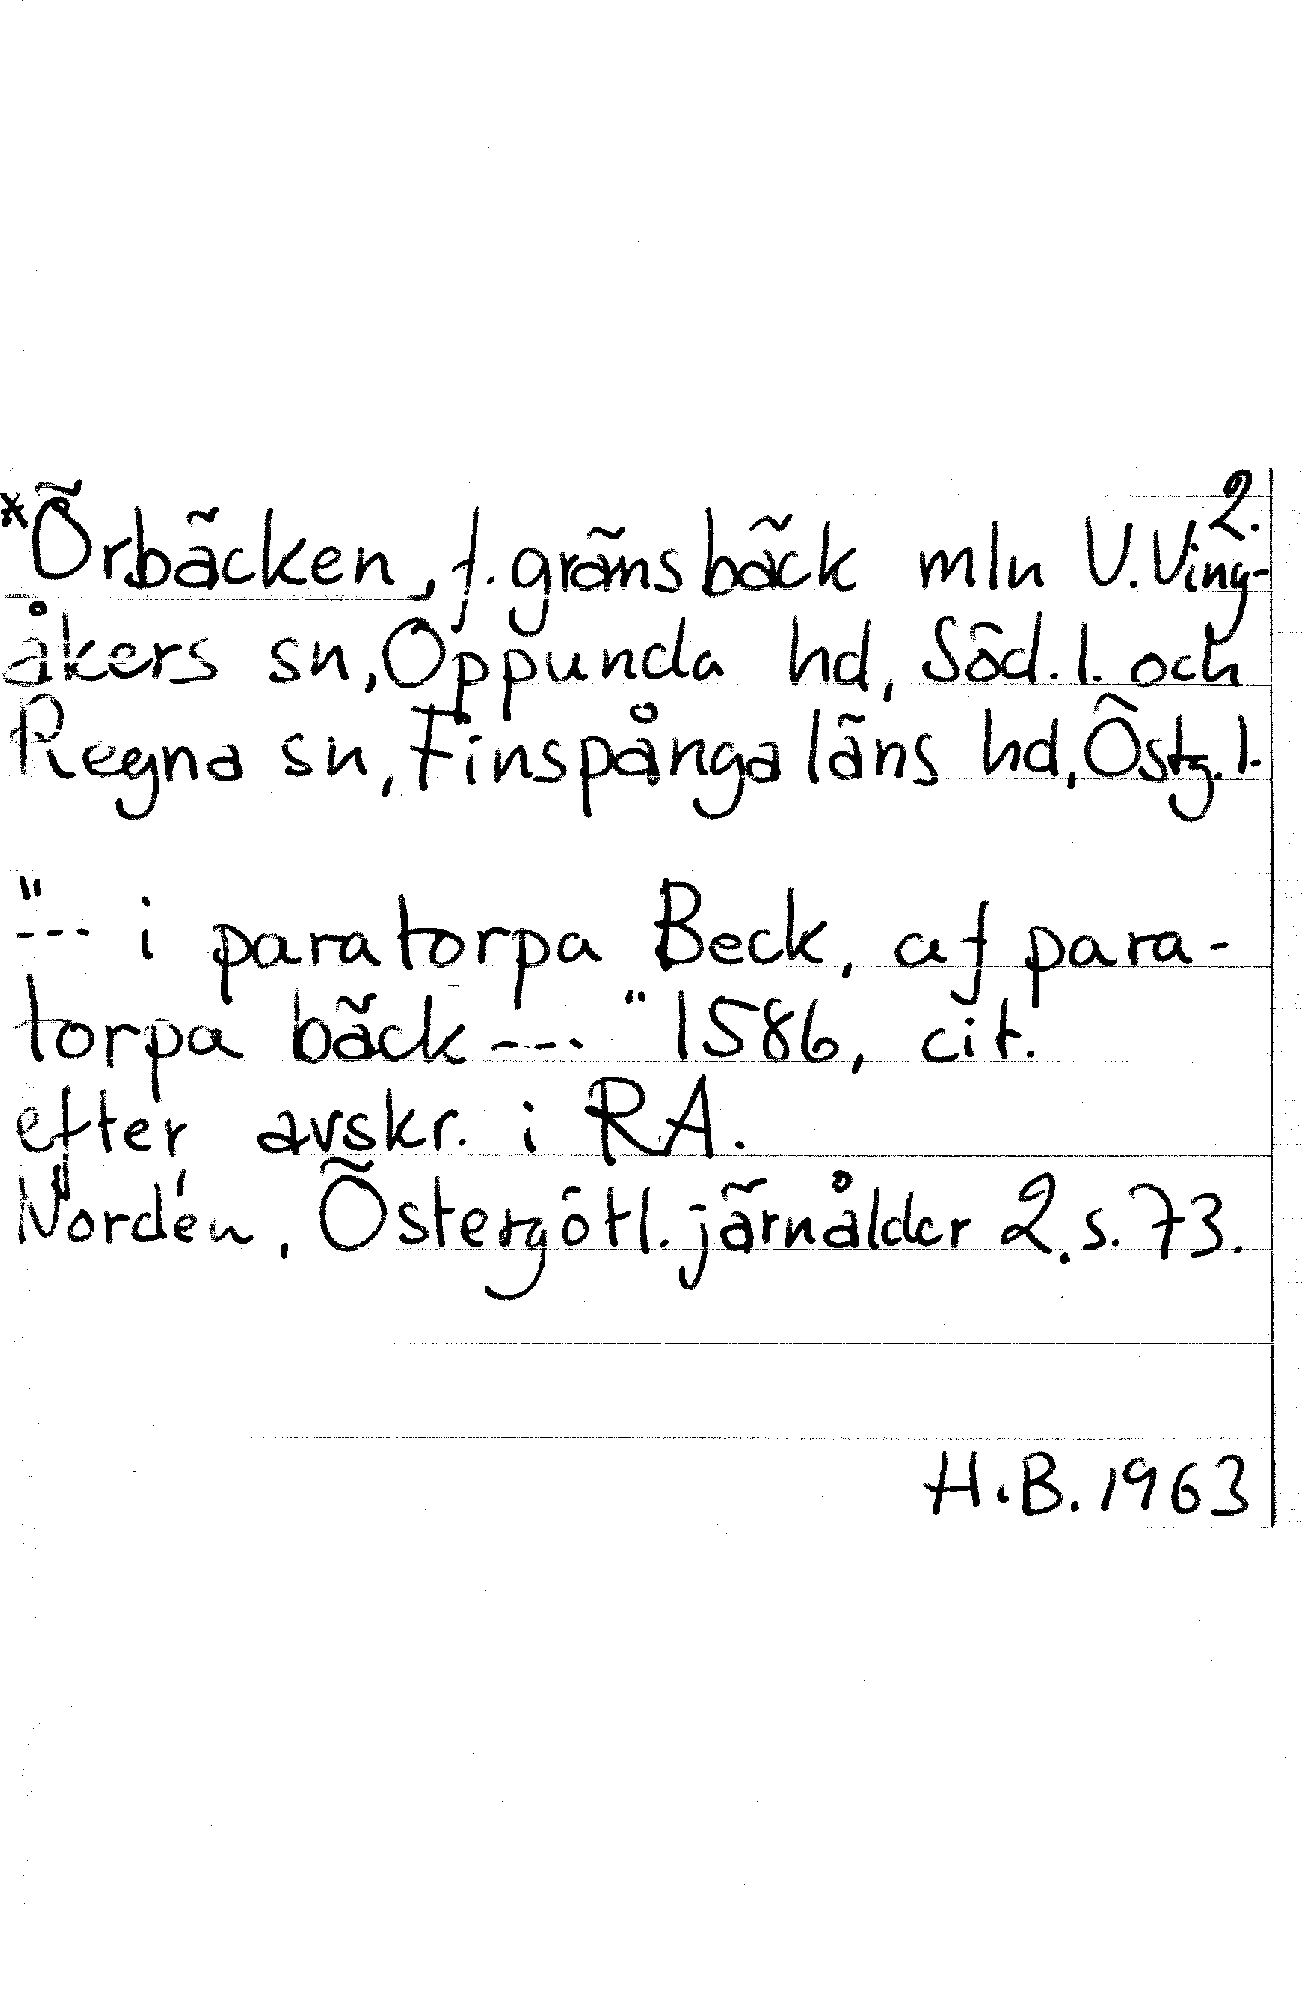 2.
*Örbäcken, f. gränsbäck mln V. Ving-
åkers sn, Oppunda hd, Söd. l. och
Regna sn, Finspånga läns hd, Östg. l.
"--- i paratorpa Beck, af para-
torpa bäck --- " 1586, cit.
efter avskr. i RA.
Nordén, Östergötl. järnålder 2. s. 73.
H.B. 1963